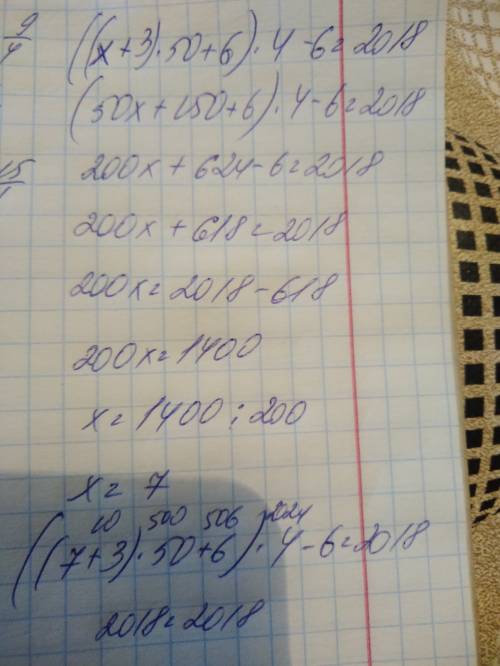 9/4
((x+3)·50+6)·4-6=2018
(50x+150+6)·4-6=2018
200x+624-6=2018
200x+618=2018
200x=2018-618
200x=1400
x=1400:200
x=7
10 500 506 2024
((7+3)·50+6)·4-6=2018
2018=2018